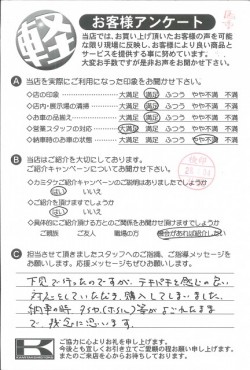 軽
お客様アンケート
当店では、お買い上げ頂いたお客様の声を可能
な限り現場に反映し、お客様により良い商品と
サービスを提供する事に努めています。
大変お手数ですが是非お声をお聞かせ下さい。
A 当店を実際にご利用になった印象をお聞かせ下さい。
◇店の印象 大満足 満足 ふつう やや不満 不満
◇店内・展示場の清掃 大満足 満足 ふつう やや不満 不満
◇お車の品揃え 大満足 満足 ふつう やや不満 不満
◇営業スタッフの対応 大満足 満足 ふつう やや不満 不満
◇納車時のお車の状態 大満足 満足 ふつう やや不満 不満
B 当店はご紹介を大切にしております。
ご紹介キャンペーンについてお聞かせ下さい。
◇カミタケご紹介キャンペーンのご説明はありましたでしょうか
はい いいえ
◇ご紹介を頂けますでしょうか
はい いいえ
◇具体的にご紹介頂ける方との関係をお聞かせ頂けますでしょうか
ご親族 ご友人 職場の方 機会があれば紹介したい
C 担当させて頂きましたスタッフへのご指摘、ご指導メッセージを
お願いします。応援メッセージもぜひお願いします。
下見で行ったのですが、テキパキと感じの良い
対応をしていただき、購入してしまいました。
納車の時 タイヤ(ホイル)等がよごれたまま
で、残念に思います。
K
ご協力に心よりお礼を申し上げます。
今後とも宜しくお引き立てご愛顧の程お願い申し上げます。
またのご来店を心からお待ちしております。